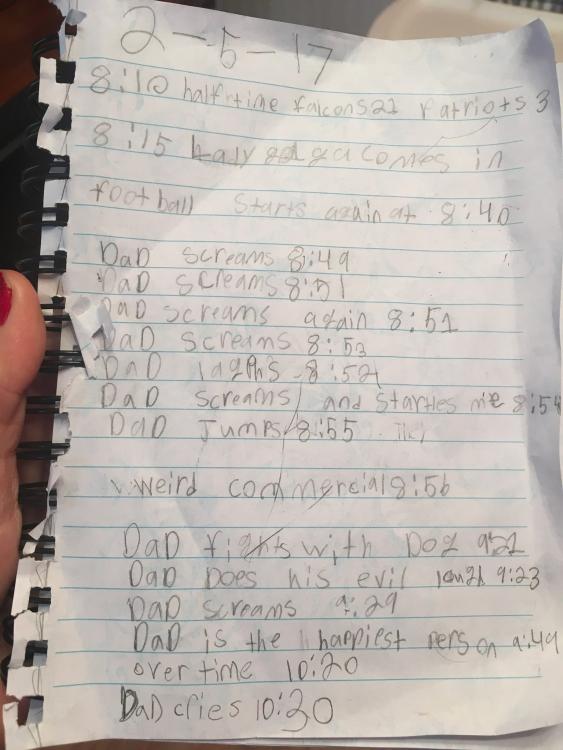 2-5-17
8:10 halfrtime falcons21 Patriots 3
8:15 Lady gaga comes in
football starts again at 8:40
DaD screams 8:49
DaD screams 8:51
DaD screams again 8:51
DaD screams 8:53
DaD laghs 8:54
DaD screams and startles me 8:54
DaD Jumps 8:55
weird commercial 8:56
DaD fights with Dog 9:21
DaD Does his evil laugh 9:23
DaD screams 9:29
DaD is the happiest person 9:49
over time 10:20
DaD cries 10:30